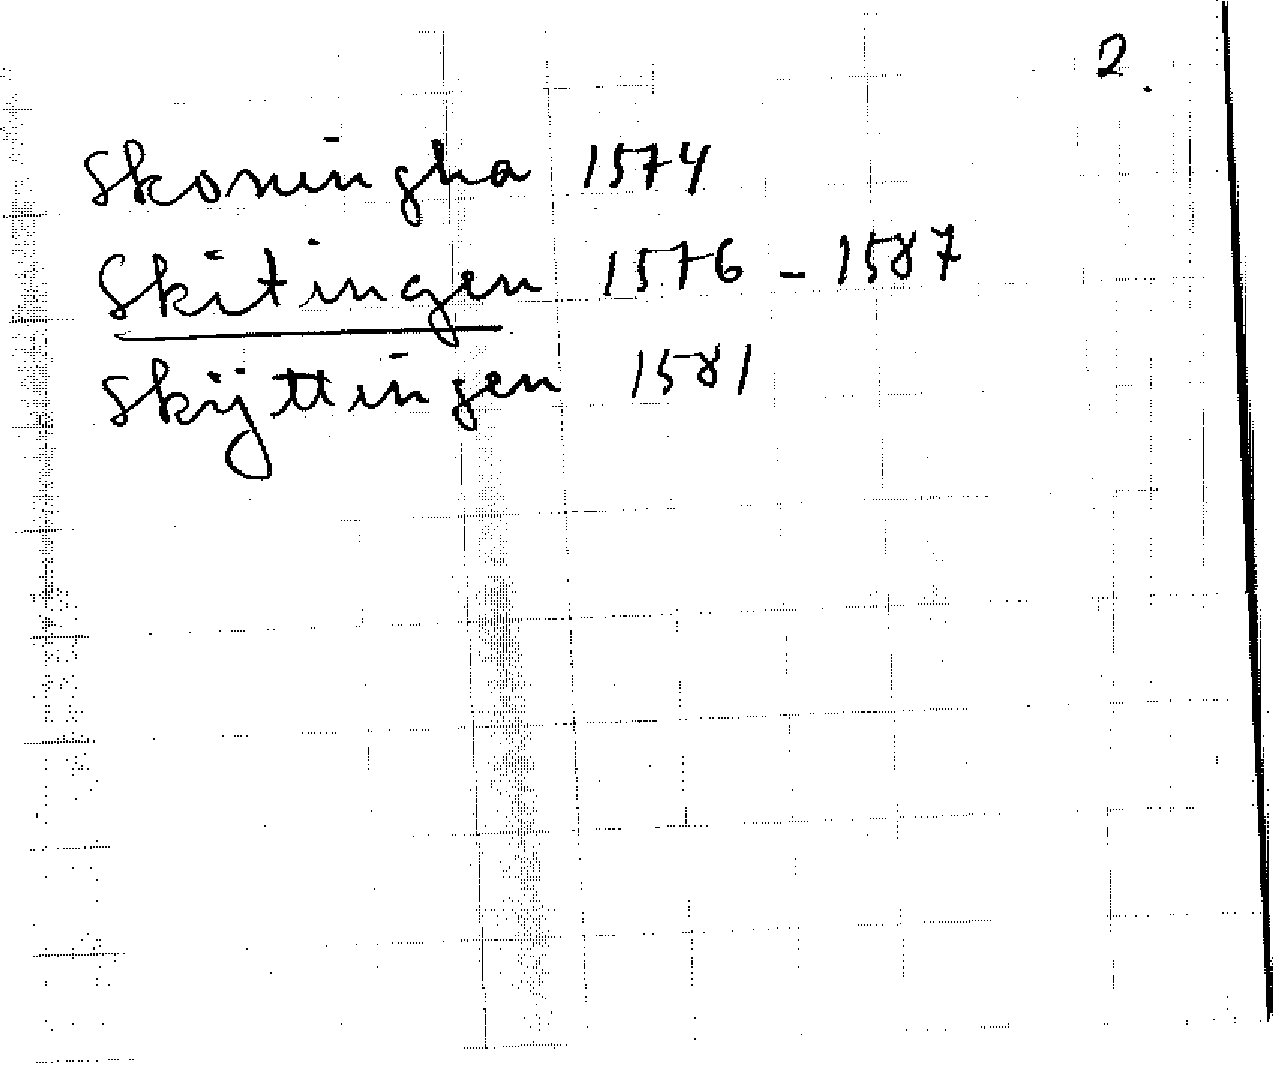 2.
Skoningha 1574
Skitingen 1576 - 1587
Skÿttingen 1581